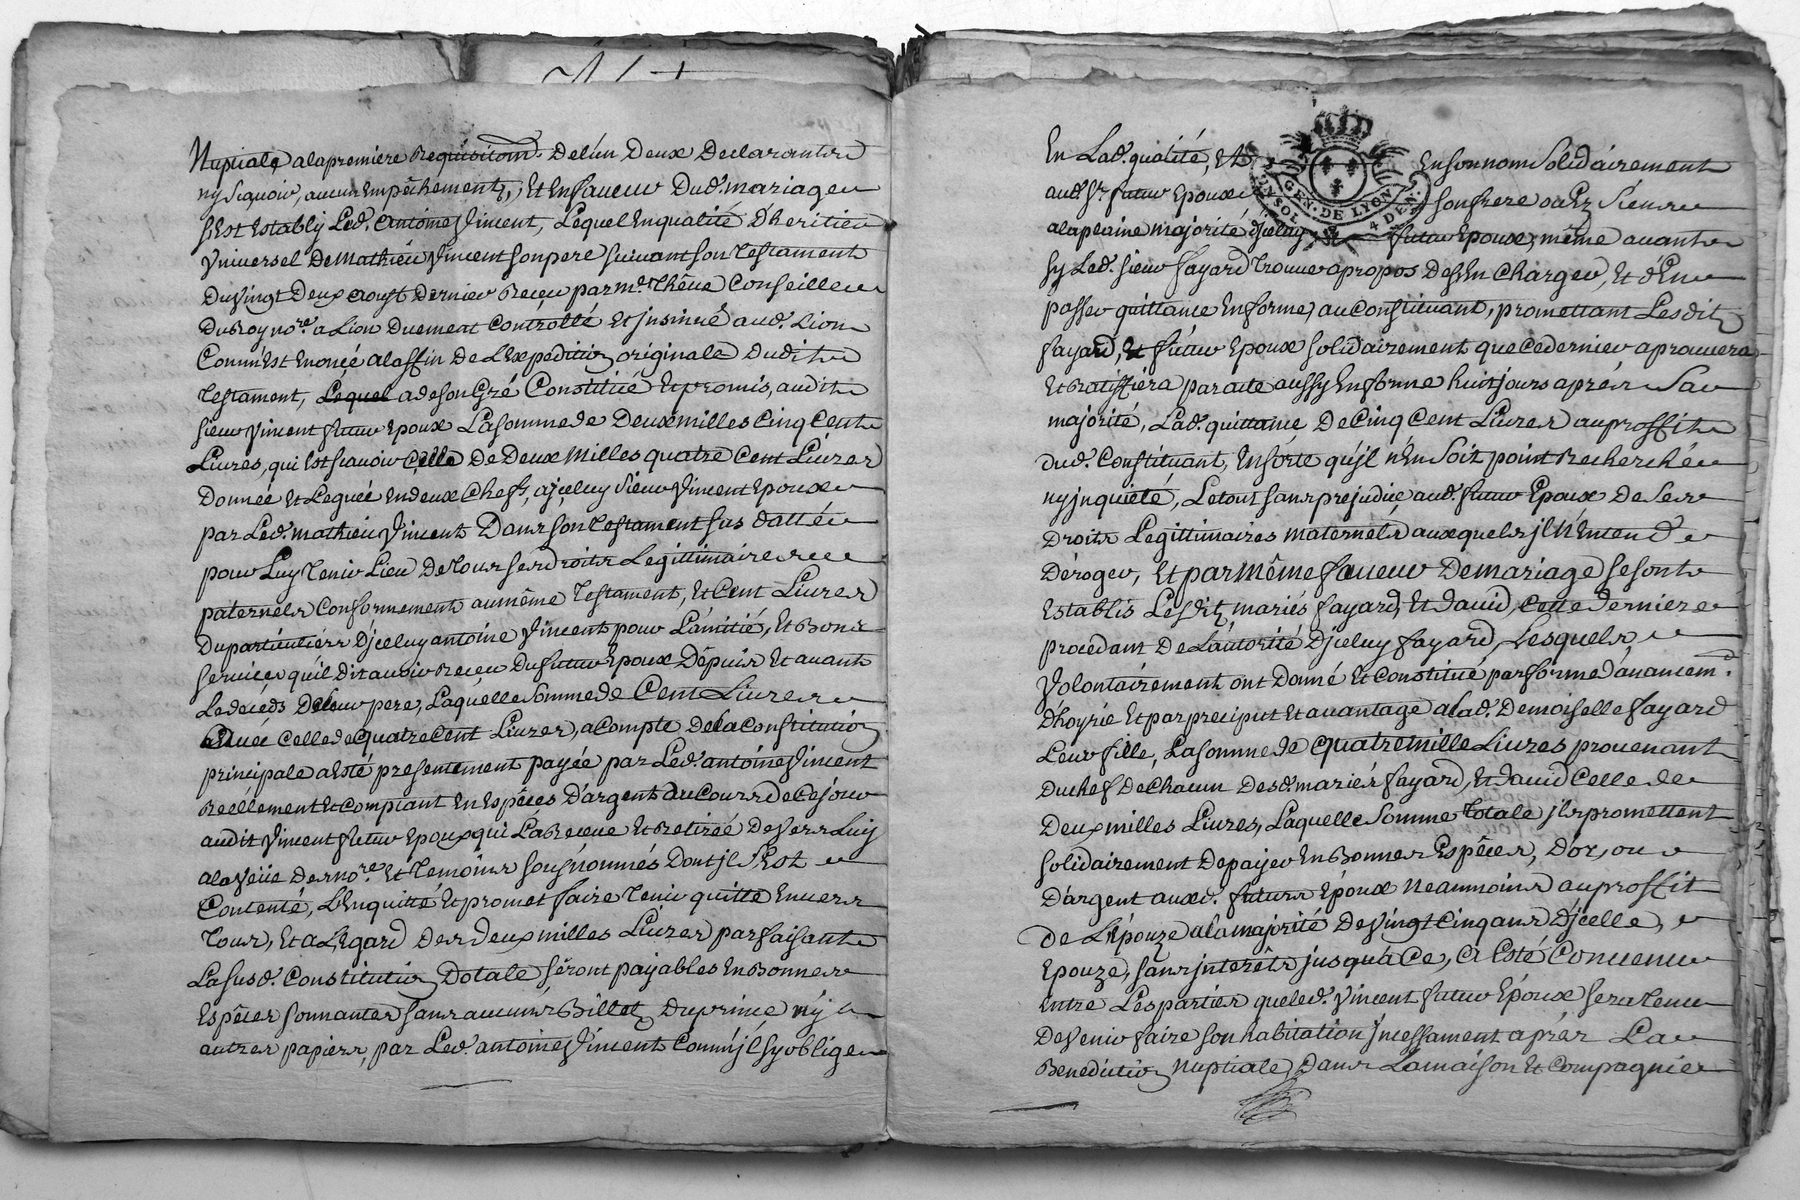 Nuptiale a la premiere Requisition De l'un Deux Declarant
ny sçauoir, aucun Empêchement, Et En faueur Dud. mariage
s'Est Estably Led. antoine Vincent, Lequel En qualité D'heritier
Vniuersel De Mathieu Vincent son pere suiuant son Testament
Du Vingt Deux aoust Dernier Receu par me. Thêue Conseiller
Du Roy nore. a Lion Duement Controllé Et jnsinué aud. Lion
Comm'Est Enoncé a la ffin De L'Expedition originale Dudit
Testament, Lequel a de son Gré Constitué Et promis, audit
sieur Vincent futur Epoux La somme de Deux milles Cinq Cent
Liures, qui Est scauoir Celle De Deux Milles quatre Cent Liures
Donnée Et Leguée En deux Chefs, a jceluy Sieur Vincent Epoux
par Led. mathieu Vincent Dans son Testament sus datté
pour Luy Tenir Lieu De Tous ses droits Legittimaires
paternels Conformement au même Testament, Et Cent Liures
Du particulier D'jceluy antoine Vincent pour L'amitié, Et Bons
seruices qu'il Dit auoir Receu Du futur Epoux Dêpuis Et auant
Le decéds De leur pere, Laquelle Somme de Cent Liures
auec celle de quatre Cent Liures, a Compte De la Constitution
principale a Esté presentement payée par Led. antoine Vincent
Réellement Et Comptant En Espêces D'argent au Cours de Ce jour
audit Vincent futur Epoux qui La Receue Et Retirée De Vers Luy
a la Veüe Des nore. Et Temoins sousnommés Dont jl s'Est
Contenté, L'En quitté Et promet faire Tenir quitte Enuers
Tous, Et a L'Egard Des deux milles Liures parfaisant
La susd. Constitution Dotale sêront payables En Bonnes
Espêces sonnantes sans aucuns Billets Du prince n'y
autres papiers, par Led. antoine Vincent Comm'jl s'y oblige
En Lad. qualité, Et En son nom Solidairement
aud. Sr. futur Epoux son frere sieur
a la plaine majorité d'jceluy futur Epoux, même auant
sy Led. sieur fayard Trouue a propos De s'En Charger, Et d'En
passer quittance En forme, au Constituant, promettant Lesdits
fayard, Et futur Epoux solidairement que Ce dernier aprouuera
Et Ratiffiera par acte aussy En forme huit jours aprés Sa
majorité, Lad. quittance De Cinq Cent Liures au proffit
dud. Constituant, En sorte qu'jl n'En Soit point Recherché
ny jnquieté, Le tout sans prejudice aud. futur Epoux De Ses
Droits Legittimaires maternels auxquels jl N'Entend
Déroger, Et par Même faueur De mariage se sont
Establis Lesdits mariés fayard, Et dauid, Cette derniere
procedant De L'autorité D'jceluy fayard, Lesquels
Volontairement ont Donné Et Constitué par forme d'auancemt.
D'hoyrie Et par preciput Et auantage a lad. Demoiselle fayard
Leur fille, La somme de quatre mille Liures prouenant
Du chef De Chacun Desd. mariés fayard, Et dauid Celle de
Deux milles Liures, Laquelle Somme Totale jls promettent
solidairement De payer En Bonnes Espêces, D'or, ou
D'argent auxd. futurs Epoux Neanmoins au proffit
De L'Epouze a la majorité De Vingt Cinq ans D'jcelle,
Epouze, sans jnterêts jusqu'a Ce, a Esté Conuenu
Entre Les parties que led. Vincent futur Epoux sera Tenu
De Venir faire son habitation jncessament aprés La
Benediction Nuptiale, Dans La maison Et Compagnie
GEN. DE LYON
UN SOL 4 DEN.